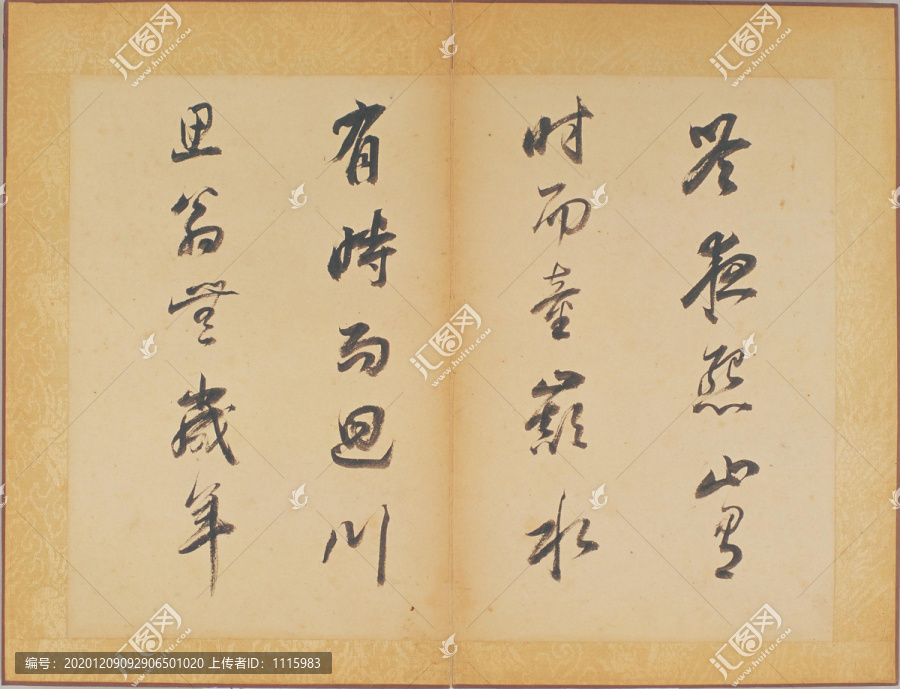 吟夜怨山有
時而童巔水
有時而迴川
思翁無歲年
汇图网
www.huitu.com
编号：20201209092906501020 上传者ID：1115983